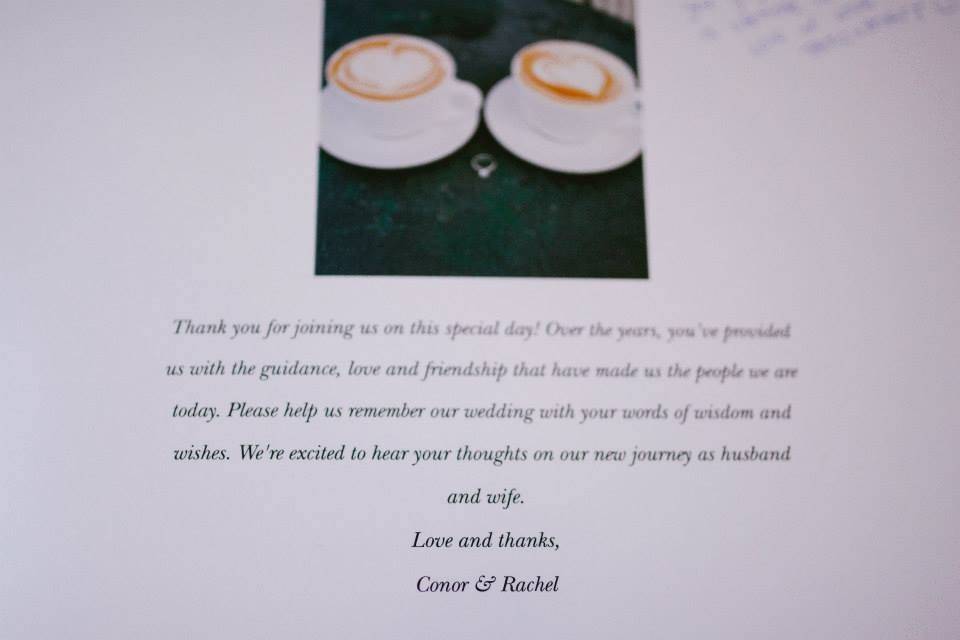 Thank you for joining us on this special day! Over the years, you've provided
us with the guidance, love and friendship that have made us the people we are
today. Please help us remember our wedding with your words of wisdom and
wishes. We're excited to hear your thoughts on our new journey as husband
and wife.
Love and thanks,
Conor & Rachel